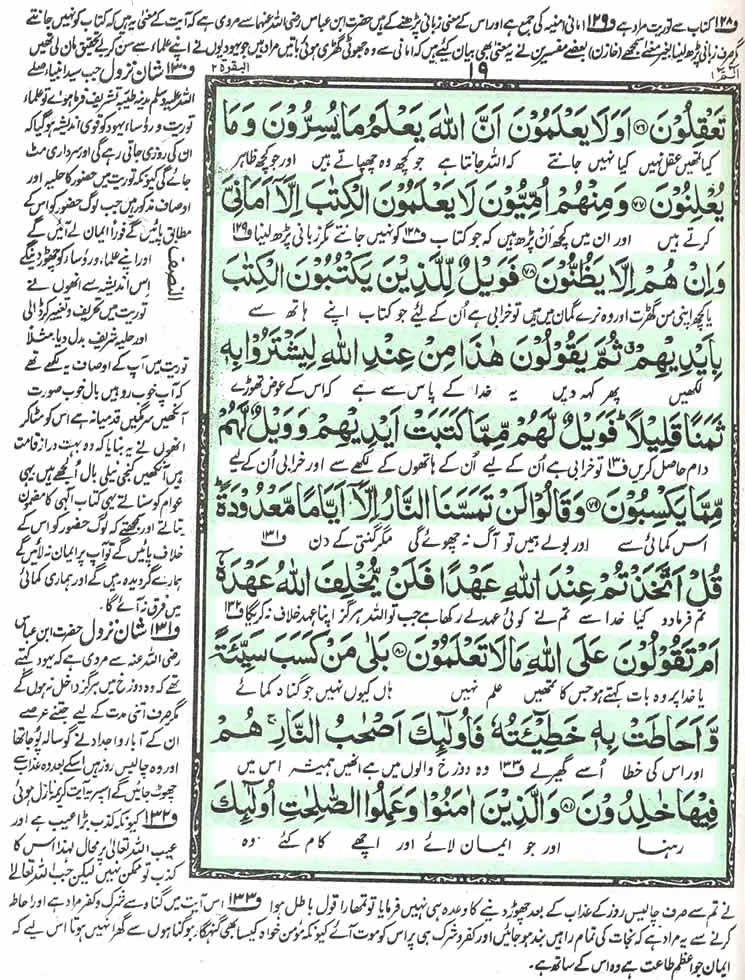 ف۱۲۸ کتاب سے توریت مراد ہے ف۱۲۹ امانی امنیہ کی جمع ہے اور اس کے معنی زبانی پڑھنے کے ہیں حضرت ابن عباس رضی اللہ عنہما سے مروی ہے کہ آیت کے معنی یہ ہیں کہ کتاب کو نہیں جانتے
مگر صرف زبانی پڑھ لینا بغیر معنے سمجھے (خازن) بعضے مفسرین نے یہ معنی بھی بیان کیئے ہیں کہ امانی سے وہ جھوٹی گھڑی ہوئی باتیں مراد ہیں جو یہودیوں نے اپنے علماء سے سن کر بے تحقیق مان لی تھیں
الٓمّٓ ۱
۱۹
البقرۃ ۲
تَعْقِلُوْنَ ﴿۷۶﴾ اَوَلَا یَعْلَمُوْنَ اَنَّ اللّٰهَ یَعْلَمُ مَا یُسِرُّوْنَ وَمَا
کیا تمہیں عقل نہیں کیا نہیں جانتے کہ اللہ جانتا ہے جو کچھ وہ چھپاتے ہیں اور جو کچھ ظاہر
یُعْلِنُوْنَ ﴿۷۷﴾ وَمِنْهُمْ اُمِّیُّوْنَ لَا یَعْلَمُوْنَ الْكِتٰبَ اِلَّاۤ اَمَانِیَّ
کرتے ہیں اور ان میں کچھ اَن پڑھ ہیں کہ جو کتاب ف۱۲۸ کو نہیں جانتے مگر زبانی پڑھ لینا ف۱۲۹
وَاِنْ هُمْ اِلَّا یَظُنُّوْنَ ﴿۷۸﴾ فَوَیْلٌ لِّلَّذِیْنَ یَكْتُبُوْنَ الْكِتٰبَ
یا کچھ اپنی من گھڑت اور وہ نرے گمان میں ہیں تو خرابی ہے اُن کے لیئے جو کتاب اپنے ہاتھ سے
بِاَیْدِیْهِمْ ثُمَّ یَقُوْلُوْنَ هٰذَا مِنْ عِنْدِ اللّٰهِ لِیَشْتَرُوْا بِهٖ
لکھیں پھر کہہ دیں یہ خدا کے پاس سے ہے کہ اس کے عوض تھوڑے
ثَمَنًا قَلِیْلًا ؕ فَوَیْلٌ لَّهُمْ مِّمَّا كَتَبَتْ اَیْدِیْهِمْ وَوَیْلٌ لَّهُمْ
دام حاصل کریں ف۱۳۰ تو خرابی ہے اُن کے لیے اُن کے ہاتھوں کے لکھے سے اور خرابی اُن کے لیے
مِّمَّا یَكْسِبُوْنَ ﴿۷۹﴾ وَقَالُوْا لَنْ تَمَسَّنَا النَّارُ اِلَّاۤ اَیَّامًا مَّعْدُوْدَةً ؕ
اس کمائی سے اور بولے ہمیں تو آگ نہ چھوئے گی مگر گنتی کے دن ف۱۳۱
قُلْ اَتَّخَذْتُمْ عِنْدَ اللّٰهِ عَهْدًا فَلَنْ یُّخْلِفَ اللّٰهُ عَهْدَهٗۤ
تم فرما دو کیا خدا سے تم نے کوئی عہد لے رکھا ہے جب تو اللہ ہرگز اپنا عہد خلاف نہ کریگا ف۱۳۲
اَمْ تَقُوْلُوْنَ عَلَى اللّٰهِ مَا لَا تَعْلَمُوْنَ ﴿۸۰﴾ بَلٰى مَنْ كَسَبَ سَیِّئَةً
یا خدا پر وہ بات کہتے ہو جس کا تمھیں علم نہیں ہاں کیوں نہیں جو گناہ کمائے
وَّاَحَاطَتْ بِهٖ خَطِیْٓـَٔتُهٗ فَاُولٰٓىِٕكَ اَصْحٰبُ النَّارِ ۚ هُمْ
اور اس کی خطا اُسے گھیر لے ف۱۳۳ وہ دوزخ والوں میں ہے انھیں ہمیشہ اس میں
فِیْهَا خٰلِدُوْنَ ﴿۸۱﴾ وَالَّذِیْنَ اٰمَنُوْا وَعَمِلُوا الصّٰلِحٰتِ اُولٰٓىِٕكَ
رہنا اور جو ایمان لائے اور اچھے کام کئے وہ
النصف
ف۱۳۰ شان نزول جب سید انبیاء صلے
اللہ علیہ وسلم مدینہ طیبہ تشریف فرما ہوئے تو علماء
توریت و رؤساء یہود کو قوی اندیشہ ہو گیا کہ
ان کی روزی جاتی رہے گی اور سرداری مٹ
جائے گی کیونکہ توریت میں حضور کا حلیہ اور
اوصاف مذکور ہیں جب لوگ حضور کو اس کے
مطابق پائیں گے فوراً ایمان لے آئیں گے
اور اپنے علماء و رؤساء کو چھوڑ دینگے
اس اندیشہ سے انھوں نے
توریت میں تحریف و تغییر کر ڈالی
اور حلیہ شریف بدل دیا، مثلاً
توریت میں آپ کے اوصاف یہ لکھے تھے
کہ آپ خوب رو ہیں بال خوب صورت
آنکھیں سرمگیں قد میانہ ہے اس کو مٹا کر
انھوں نے یہ بنایا کہ وہ بہت دراز قامت
ہیں آنکھیں کنجی نیلی بال اُلجھے ہیں یہی
عوام کو سناتے یہی کتاب الٰہی کا مضمون
بتاتے اور سمجھتے کہ لوگ حضور کو اس کے
خلاف پائیں گے تو آپ پر ایمان نہ لائیں گے
ہمارے گرویدہ رہیں گے اور ہماری کمائی
میں فرق نہ آئے گا۔
ف۱۳۱ شان نزول حضرت ابن عباس
رضی اللہ عنہ سے مروی ہے کہ یہود کہتے
تھے کہ وہ دوزخ میں ہرگز داخل نہ ہوں گے
مگر صرف اتنی مدت کے لیے جتنے عرصے
ان کے آباء و اجداد نے گوسالہ پُوجا تھا
اور وہ چالیس روز ہیں اسکے بعد وہ عذاب سے
چھوٹ جائیں گے اسپر یہ آیت کریمہ نازل ہوئی
ف۱۳۲ کیونکہ کذب بڑا عیب ہے اور
عیب اللہ تعالیٰ پر محال لہٰذا اس کا
کذب تو ممکن نہیں لیکن جب اللہ تعالےٰ
نے تم سے صرف چالیس روز کے عذاب کے بعد چھوڑ دینے کا وعدہ ہی نہیں فرمایا تو تمھارا قول باطل ہوا ف۱۳۳ اس آیت میں گناہ سے شرک و کفر مراد ہے اور احاطہ
کرنے سے یہ مراد ہے کہ نجات کی تمام راہیں بند ہو جائیں اور کفر و شرک ہی پر اس کو موت آئے کیونکہ مؤمن خواہ کیسا بھی گنہگار ہو گناہوں سے گھرا نہیں ہوتا اس لیے کہ
ایمان جو اعظم طاعت ہے وہ اس کے ساتھ ہے۔